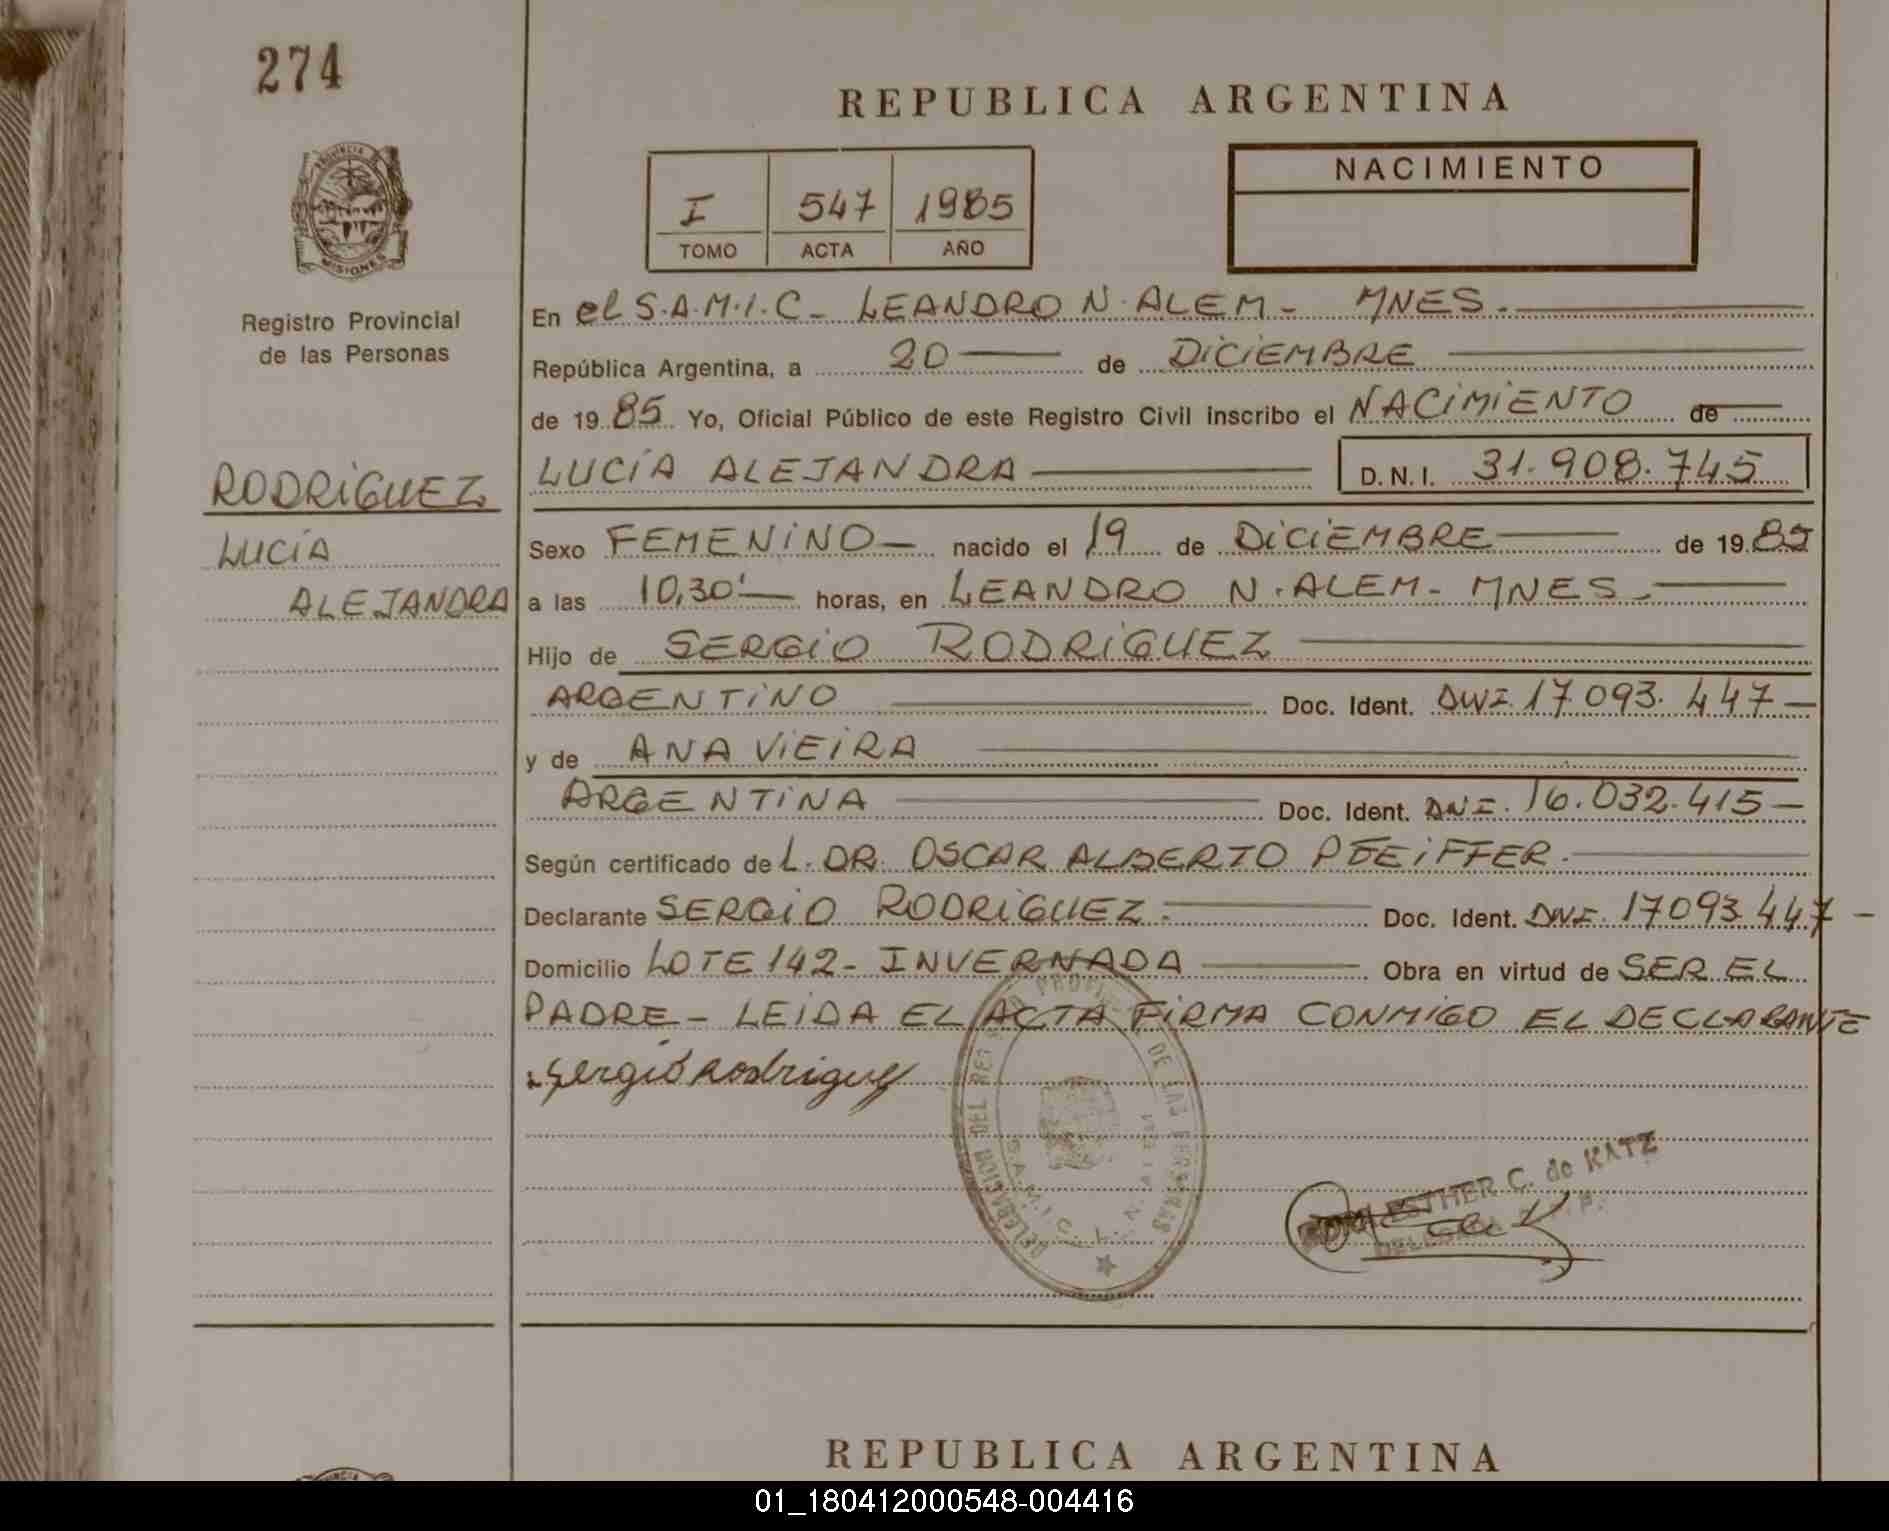 274
REPUBLICA ARGENTINA
PROVINCIA DE
MISIONES
Registro Provincial
de las Personas
I 547 1985
TOMO ACTA AÑO
NACIMIENTO
En el S.A.M.I.C - LEANDRO N. ALEM - MNES.
República Argentina, a 20 de DICIEMBRE
de 19 85 Yo, Oficial Público de este Registro Civil inscribo el NACIMIENTO de
RODRIGUEZ
LUCÍA
ALEJANDRA
LUCÍA ALEJANDRA D.N.I. 31.908.745
Sexo FEMENINO - nacido el 19 de DICIEMBRE de 19 85
a las 10,30' horas, en LEANDRO N. ALEM - MNES -
Hijo de SERGIO RODRIGUEZ
ARGENTINO Doc. Ident. DNI 17.093.447 -
y de ANA VIEIRA
ARGENTINA Doc. Ident. DNI. 16.032.415 -
Según certificado de L. DR. OSCAR ALBERTO PFEIFFER.
Declarante SERGIO RODRIGUEZ. Doc. Ident. DNI. 17093.447 -
Domicilio LOTE 142 - INVERNADA Obra en virtud de SER EL
PADRE - LEIDA EL ACTA FIRMA CONMIGO EL DECLARANTE
Sergio Rodriguez
DELEGACION DEL REG PROV DE LAS PERSONAS
S.A.M.I.C. L. N.
ESTHER C. de KATZ
REPUBLICA ARGENTINA
01_180412000548-004416